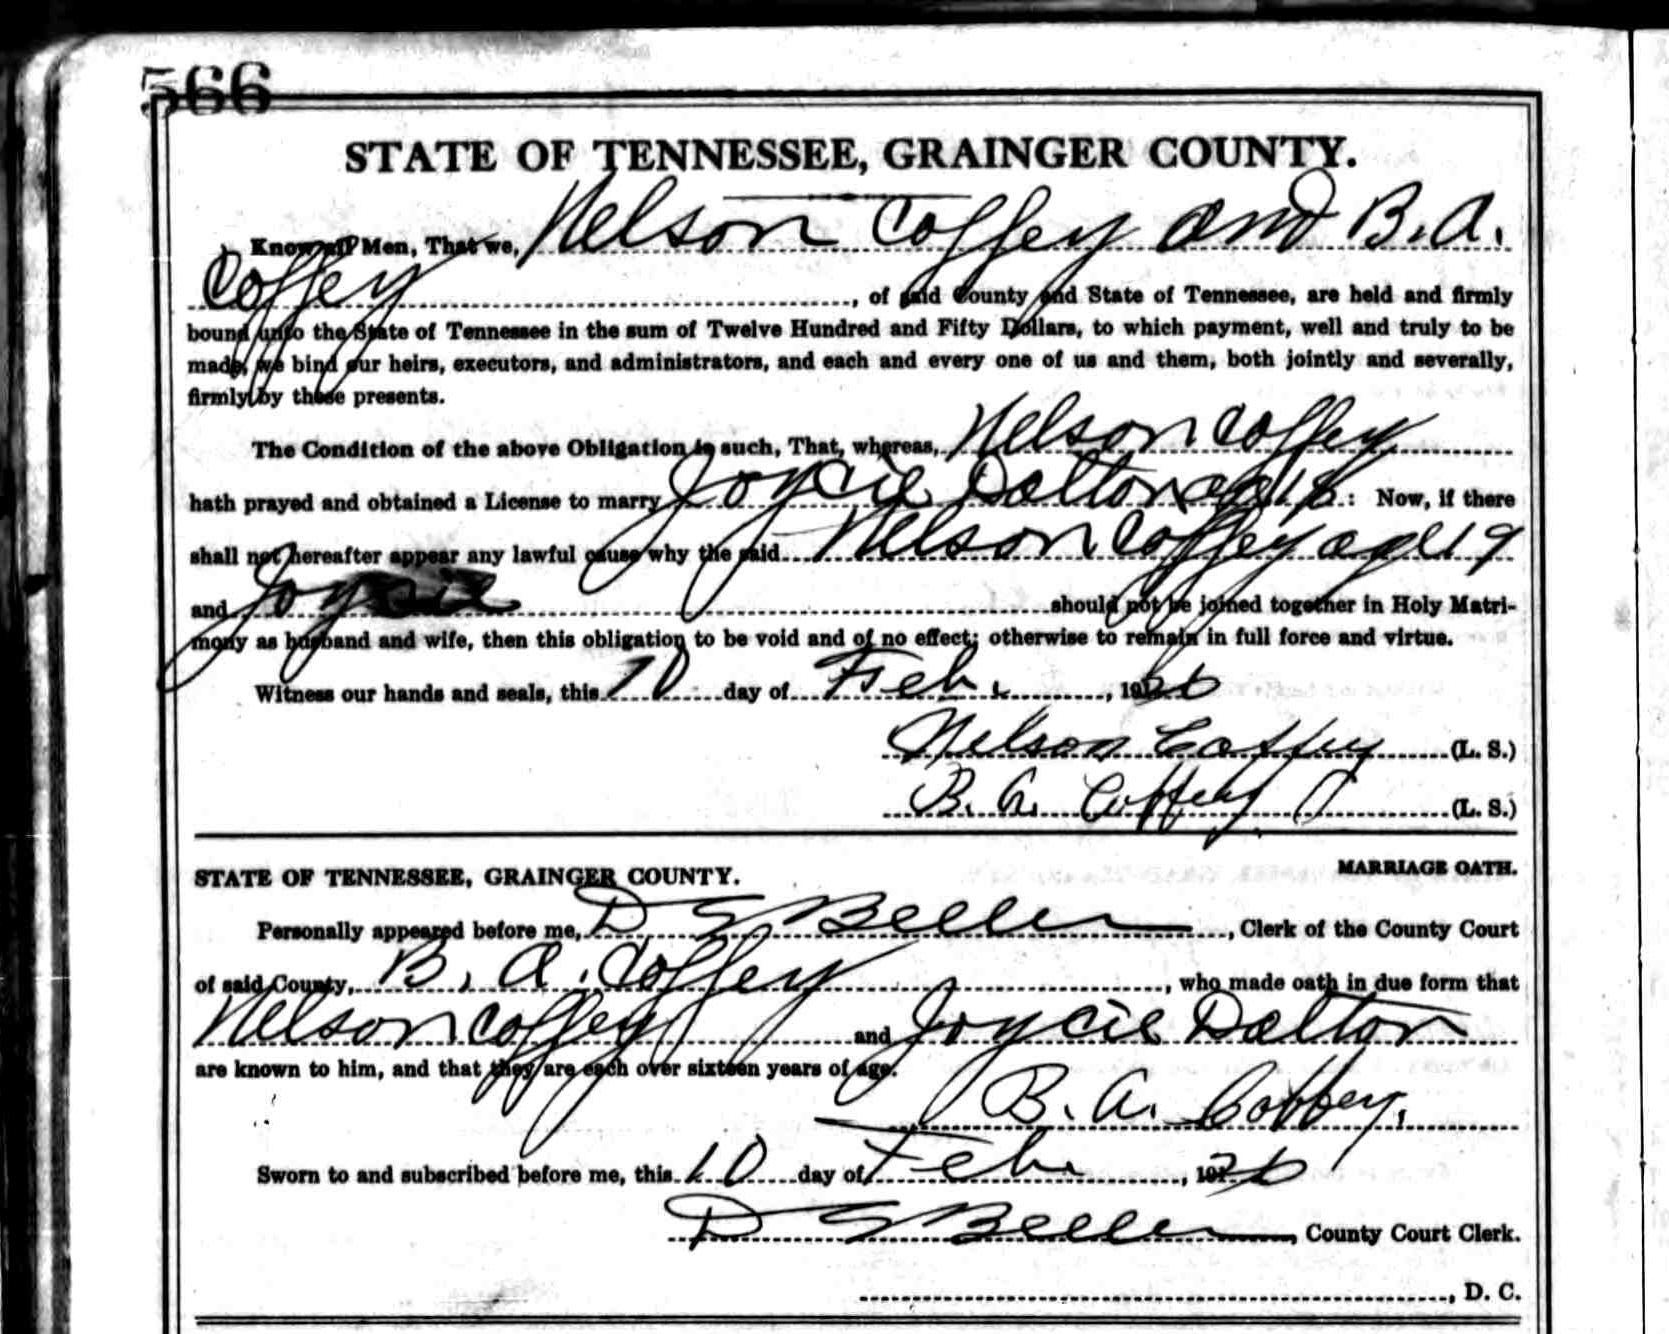 566
STATE OF TENNESSEE, GRAINGER COUNTY.
Know all Men, That we, Nelson Coffey and B. A.
Coffey, of said County and State of Tennessee, are held and firmly
bound unto the State of Tennessee in the sum of Twelve Hundred and Fifty Dollars, to which payment, well and truly to be
made, we bind our heirs, executors, and administrators, and each and every one of us and them, both jointly and severally,
firmly by these presents.
The Condition of the above Obligation is such, That, whereas, Nelson Coffey
hath prayed and obtained a License to marry Joycie Dalton age 18 : Now, if there
shall not hereafter appear any lawful cause why the said Nelson Coffey age 19
and Joycie should not be joined together in Holy Matri-
mony as husband and wife, then this obligation to be void and of no effect; otherwise to remain in full force and virtue.
Witness our hands and seals, this 10 day of Feb., 1926
Nelson Coffey (L. S.)
B. A. Coffey (L. S.)
MARRIAGE OATH.
STATE OF TENNESSEE, GRAINGER COUNTY.
Personally appeared before me, D S Beeler, Clerk of the County Court
of said County, B. A. Coffey, who made oath in due form that
Nelson Coffey and Joycie Dalton
are known to him, and that they are each over sixteen years of age.
B. A. Coffey.
Sworn to and subscribed before me, this 10 day of Feb, 1926
D S Beeler, County Court Clerk.
, D. C.